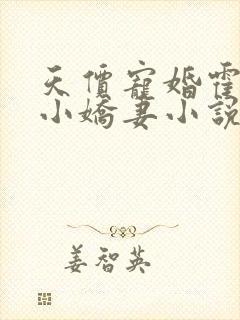 天價寵婚霍
小嬌妻小說
姜智英